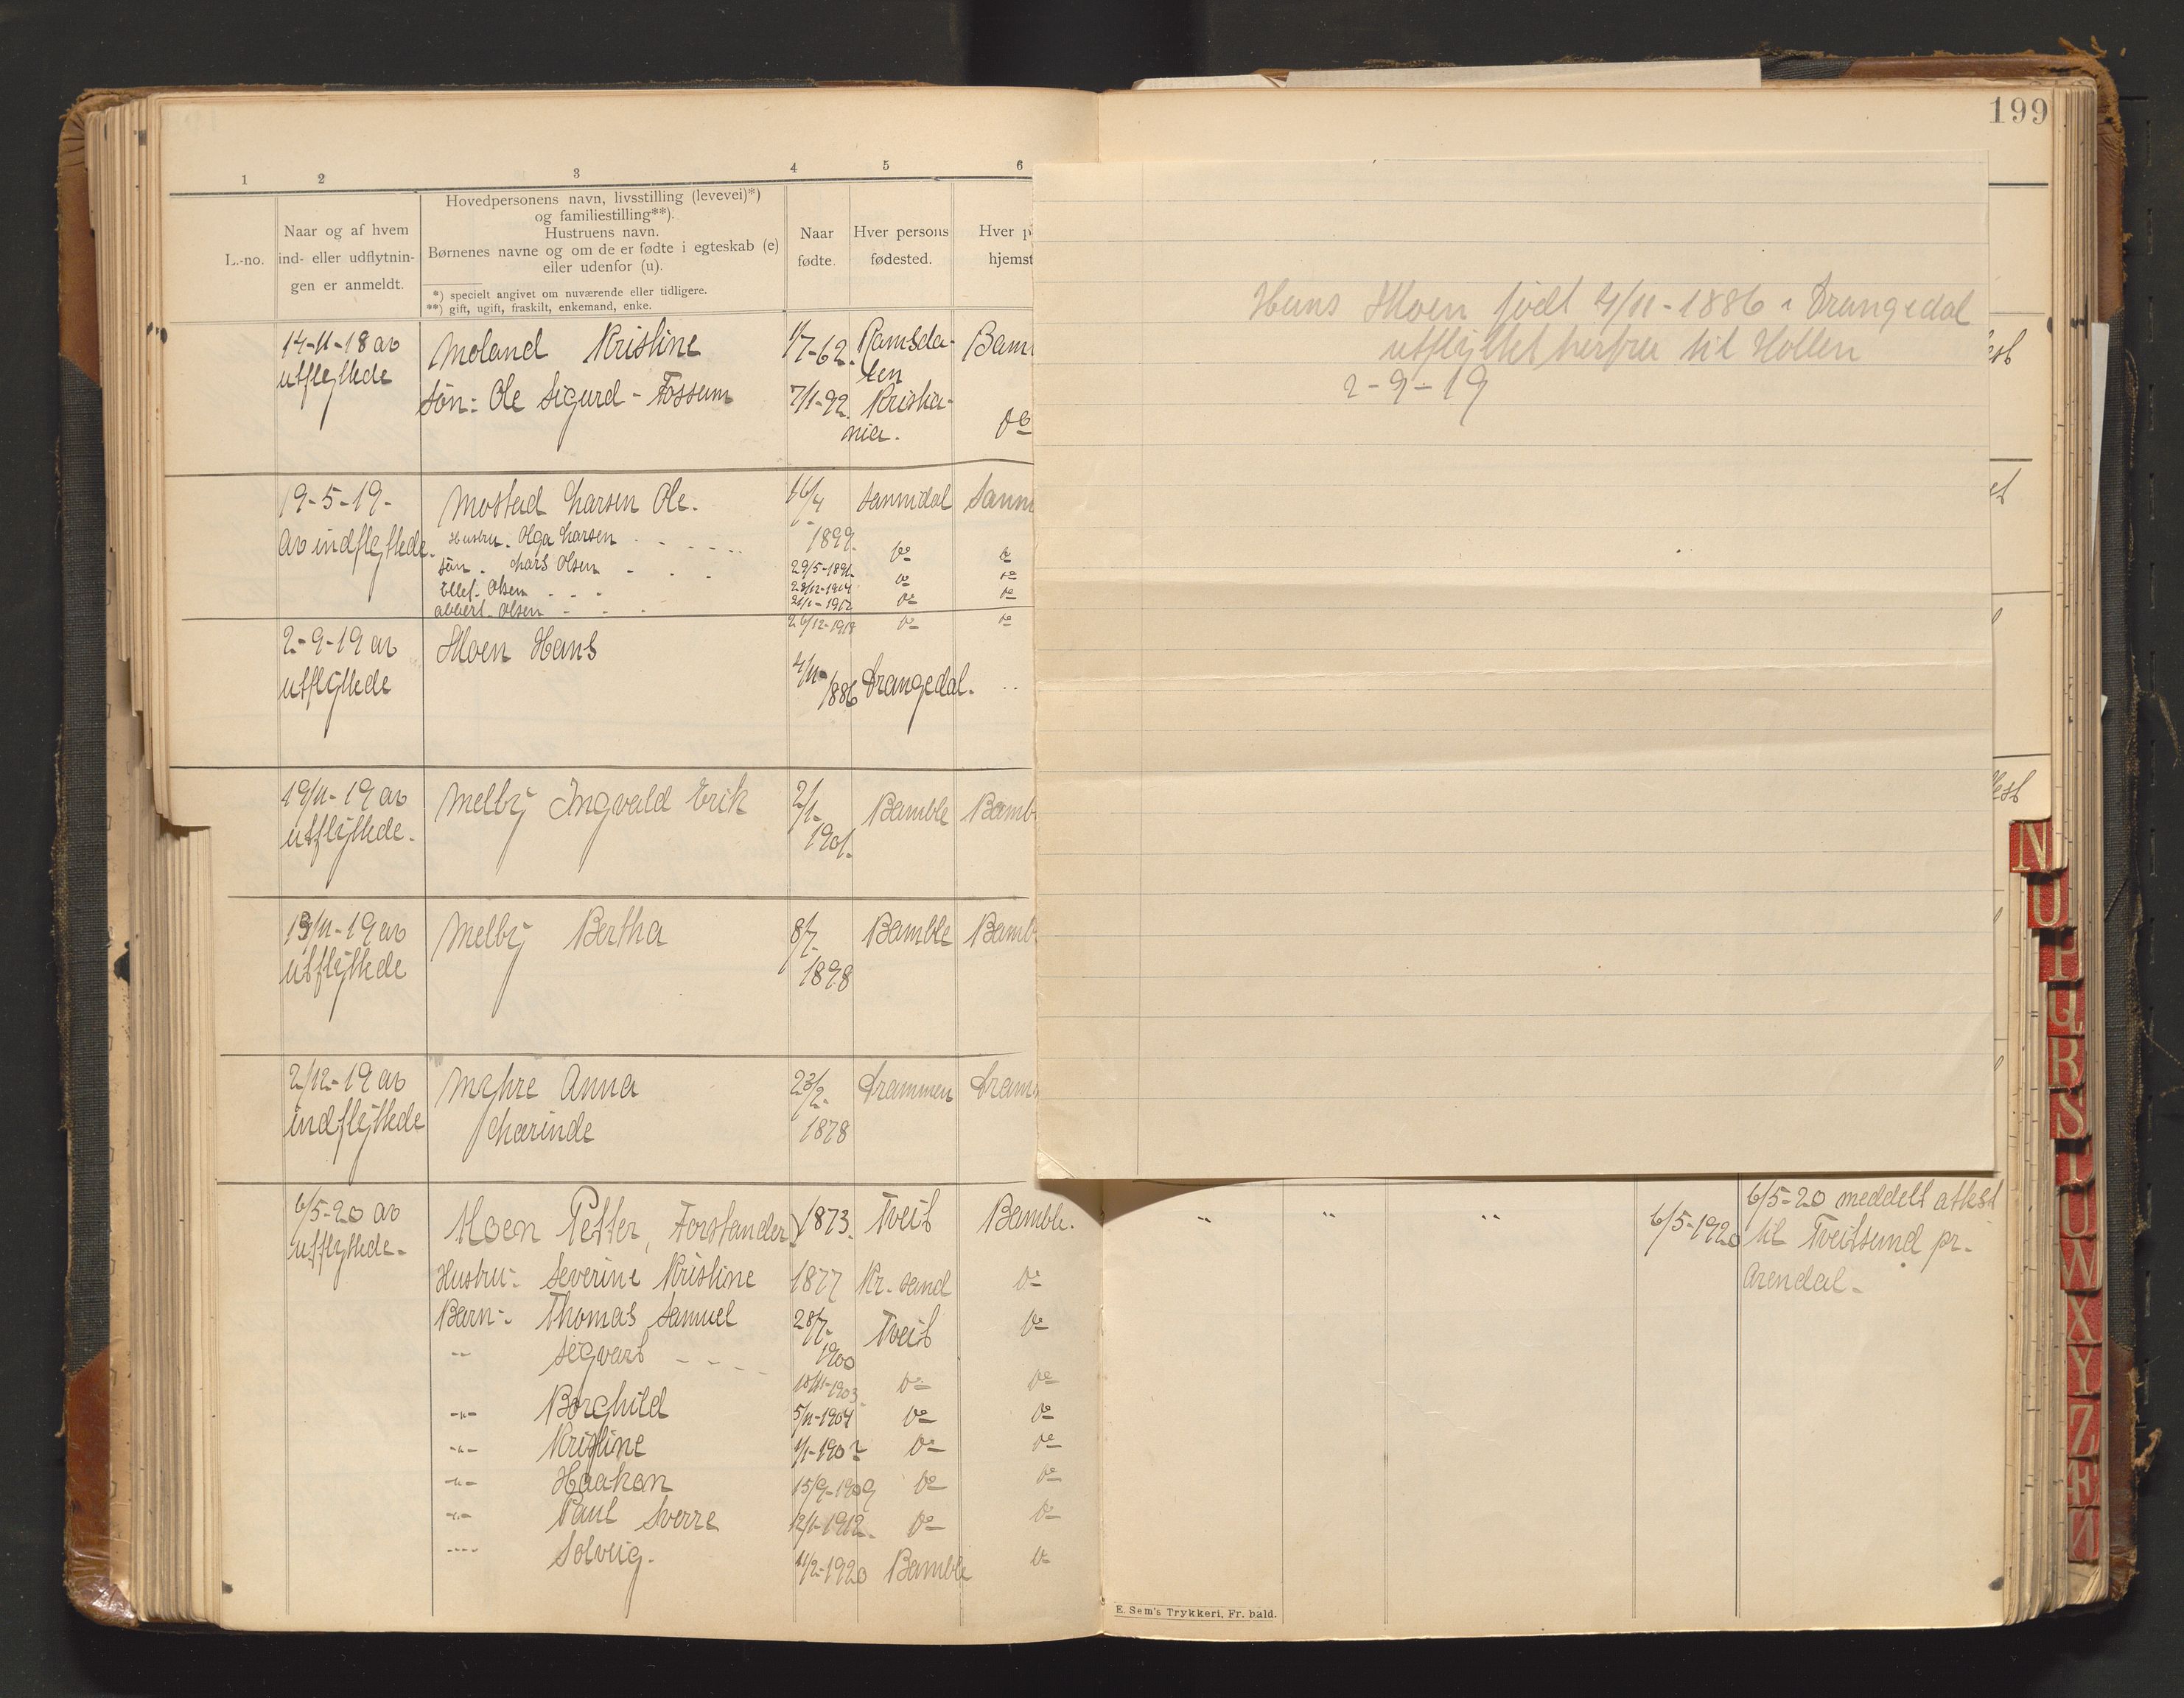 199
1 2 3 4 5 6
L.-no.
Naar og af hvem
ind- eller udflytnin-
gen er anmeldt.
Hovedpersonens navn, livsstilling (levevei)*)
og familiestilling**).
Hustruens navn.
Børnenes navne og om de er fødte i egteskab (e)
eller udenfor (u).
*) specielt angivet om nuværende eller tidligere.
**) gift, ugift, fraskilt, enkemand, enke.
Naar
fødte.
Hver persons
fødested.
Hver p
hjemst
14-11-18 av
utflyttede
Moland Kristine
1/7-62. Ramsda-
len
Bam
Søn: Ole Sigurd - Fossum
7/1-92. Kristia-
nia.
do
19-5-19-
av indflyttede.
Mostad Larsen Ole.
16/4
1899.
Sannidal Sann
Hustru. Olga Larsen
29/5-1891. do do
Søn. Lars Olsen
28/12-1904 do do
Ellef. Olsen
26/1-1912 do do
Albert. Olsen
26/12-1918 do do
2-9-19 av
utflyttede
Moen Hans
4/11-
1886 Drangedal.
19/11-19 av
utflyttede.
Melby Ingvald Erik
2/1-
1901.
Bamble Bamb
13/11-19 av
utflyttede
Melby Bertha
8/7-
1898
Bamble Bamb
2/12-19 av
indflyttede
Myhre Anna
Larinde
23/2-
1878
Drammen Dram
6/5-20 av
utflyttede-
Moen Petter, Forstander
1873. Tveit Bamble.
Hustru: Severine Kristine 1877 Kr. sand do
Barn: Thomas Samuel 28/7-
1900 Tveit do
-"- Sigvart 10/11-1903 do do
-"- Borghild 5/11-1904 do do
-"- Kristine 1/1-1907 do do
-"- Haakon 15/9-1909 do do
-"- Paul Sverre 12/1-1912. do do
-"- Solveig. 11/2-1920 Bamble do
Hans Moen født 4/11-1886 i Drangedal
utflyttet herfra til Hollen
2-9-19
est
et
test
" " "
6/5-1920
6/5-20 meddelt attest
til Tveitsund pr.
Arendal-
E. Sem's Trykkeri, Fr. hald.
N
O
P
Q
R
S
T
U
W
X
Y
Z
Æ
Ø